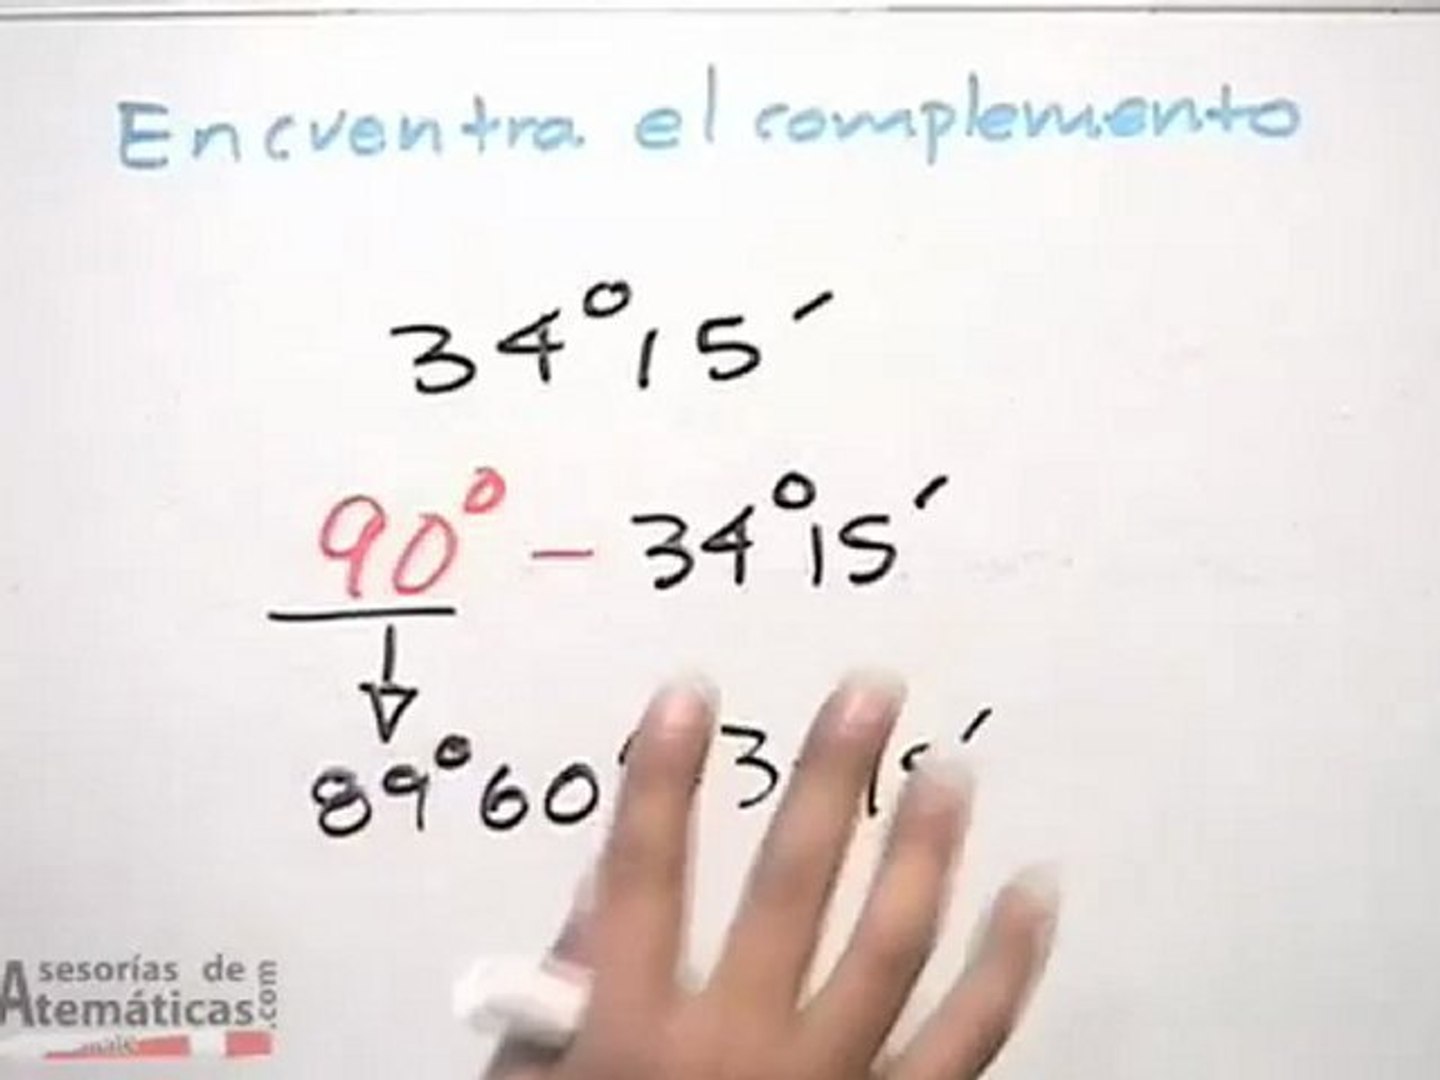 Encuentra el complemento
34°15′
90° - 34°15′
89°60′ 3
Asesorías de
Atemáticas.com